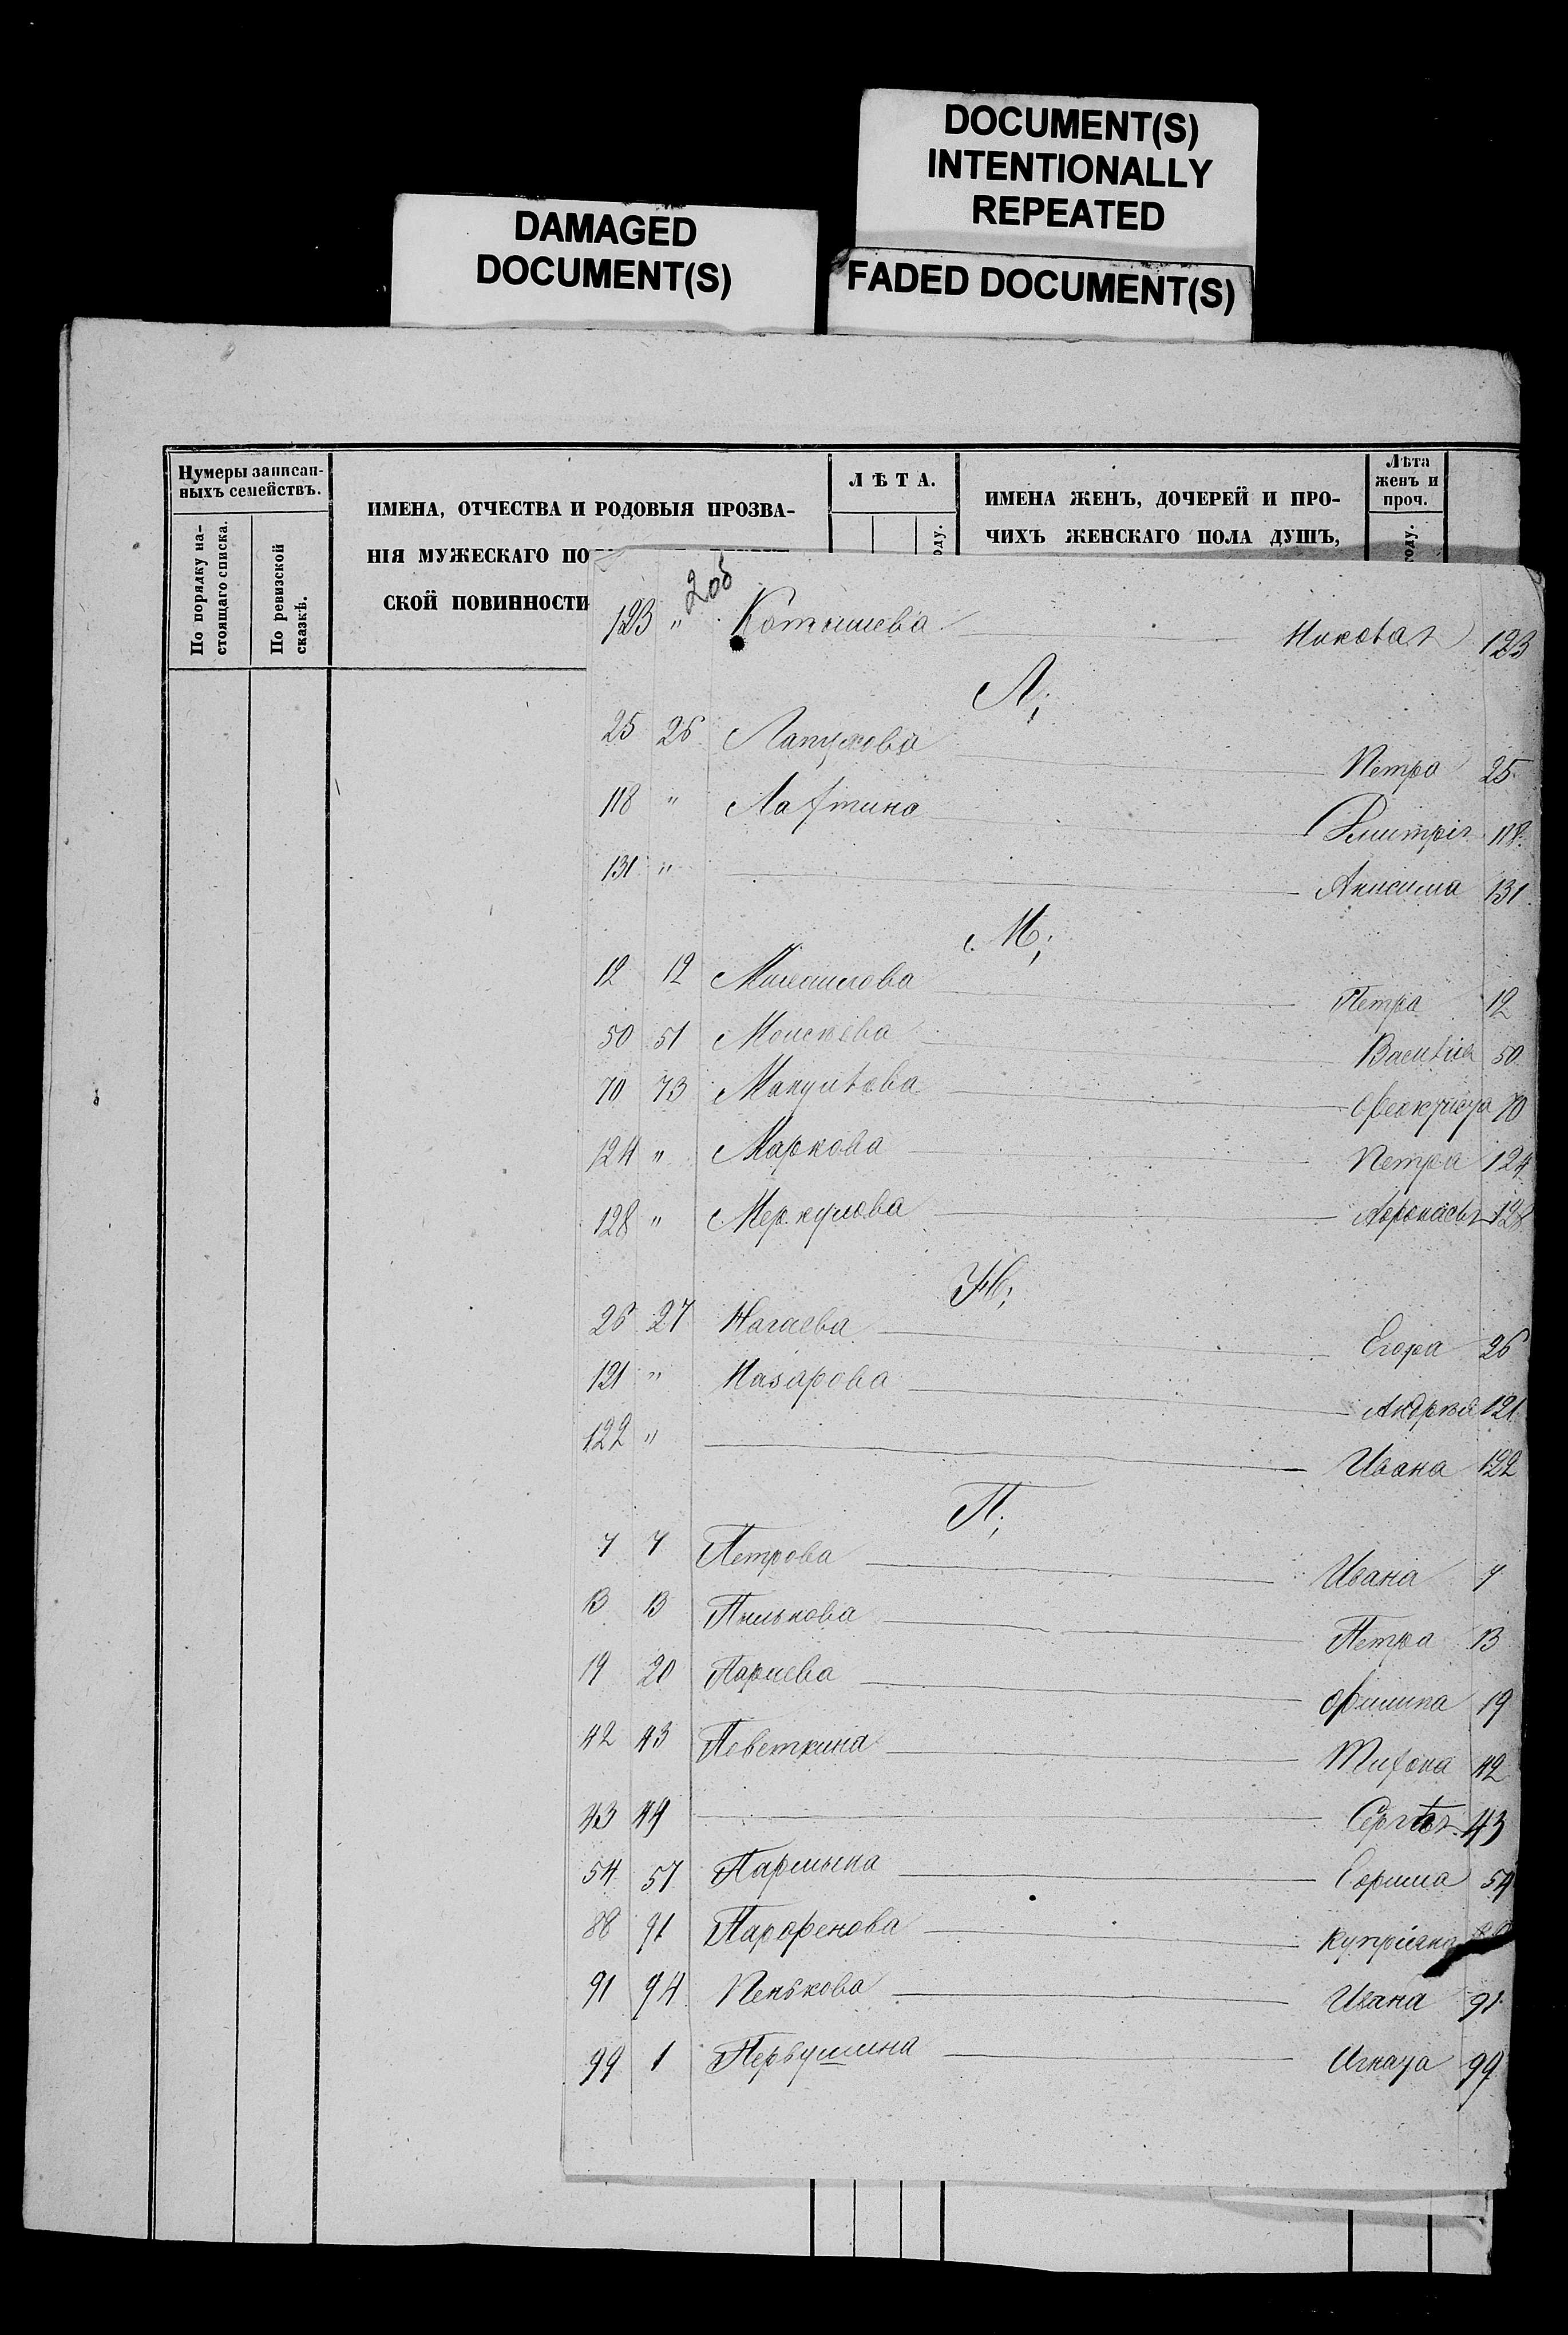 DOCUMENT(S)
INTENTIONALLY
REPEATED
DAMAGED
DOCUMENT(S)
FADED DOCUMENT(S)
Нумеры записан-
ныхъ семействъ.
По порядку на-
стоящаго списка.
По ревизской
сказкѣ.
ИМЕНА, ОТЧЕСТВА И РОДОВЫЯ ПРОЗВА-
НІЯ МУЖЕСКАГО ПО
СКОЙ ПОВИННОСТИ
ЛѢТА.
оду.
ИМЕНА ЖЕНЪ, ДОЧЕРЕЙ И ПРО-
ЧИХЪ ЖЕНСКАГО ПОЛА ДУШЪ,
Лѣта
женъ и
проч.
году.
205
123 " Котышева Николая 123
Л;
25 26 Лапухова Петра 25
118 " Лахтина Дмитрія 118
131 " Анисима 131
М;
12 12 Михаилова Петра 12
50 51 Моисѣева Василія 50
70 73 Феоктиста 70
124 " Маркова Петра 124
128 " Меркулова Афонасья 128
Н;
26 27 Нагаева Егора 26
121 " Назарова Андрѣя 121
122 " Ивана 122
П;
7 7 Петрова Ивана 7
13 13 Пынькова Петра 13
19 20 Филипа 19
42 43 Поветкина Тихона 42
43 44 Сергѣя 43
54 57 54
88 91 Парфенова Купріяна 88
91 94 Пенькова Ивана 91
99 1 Первушина Игната 99